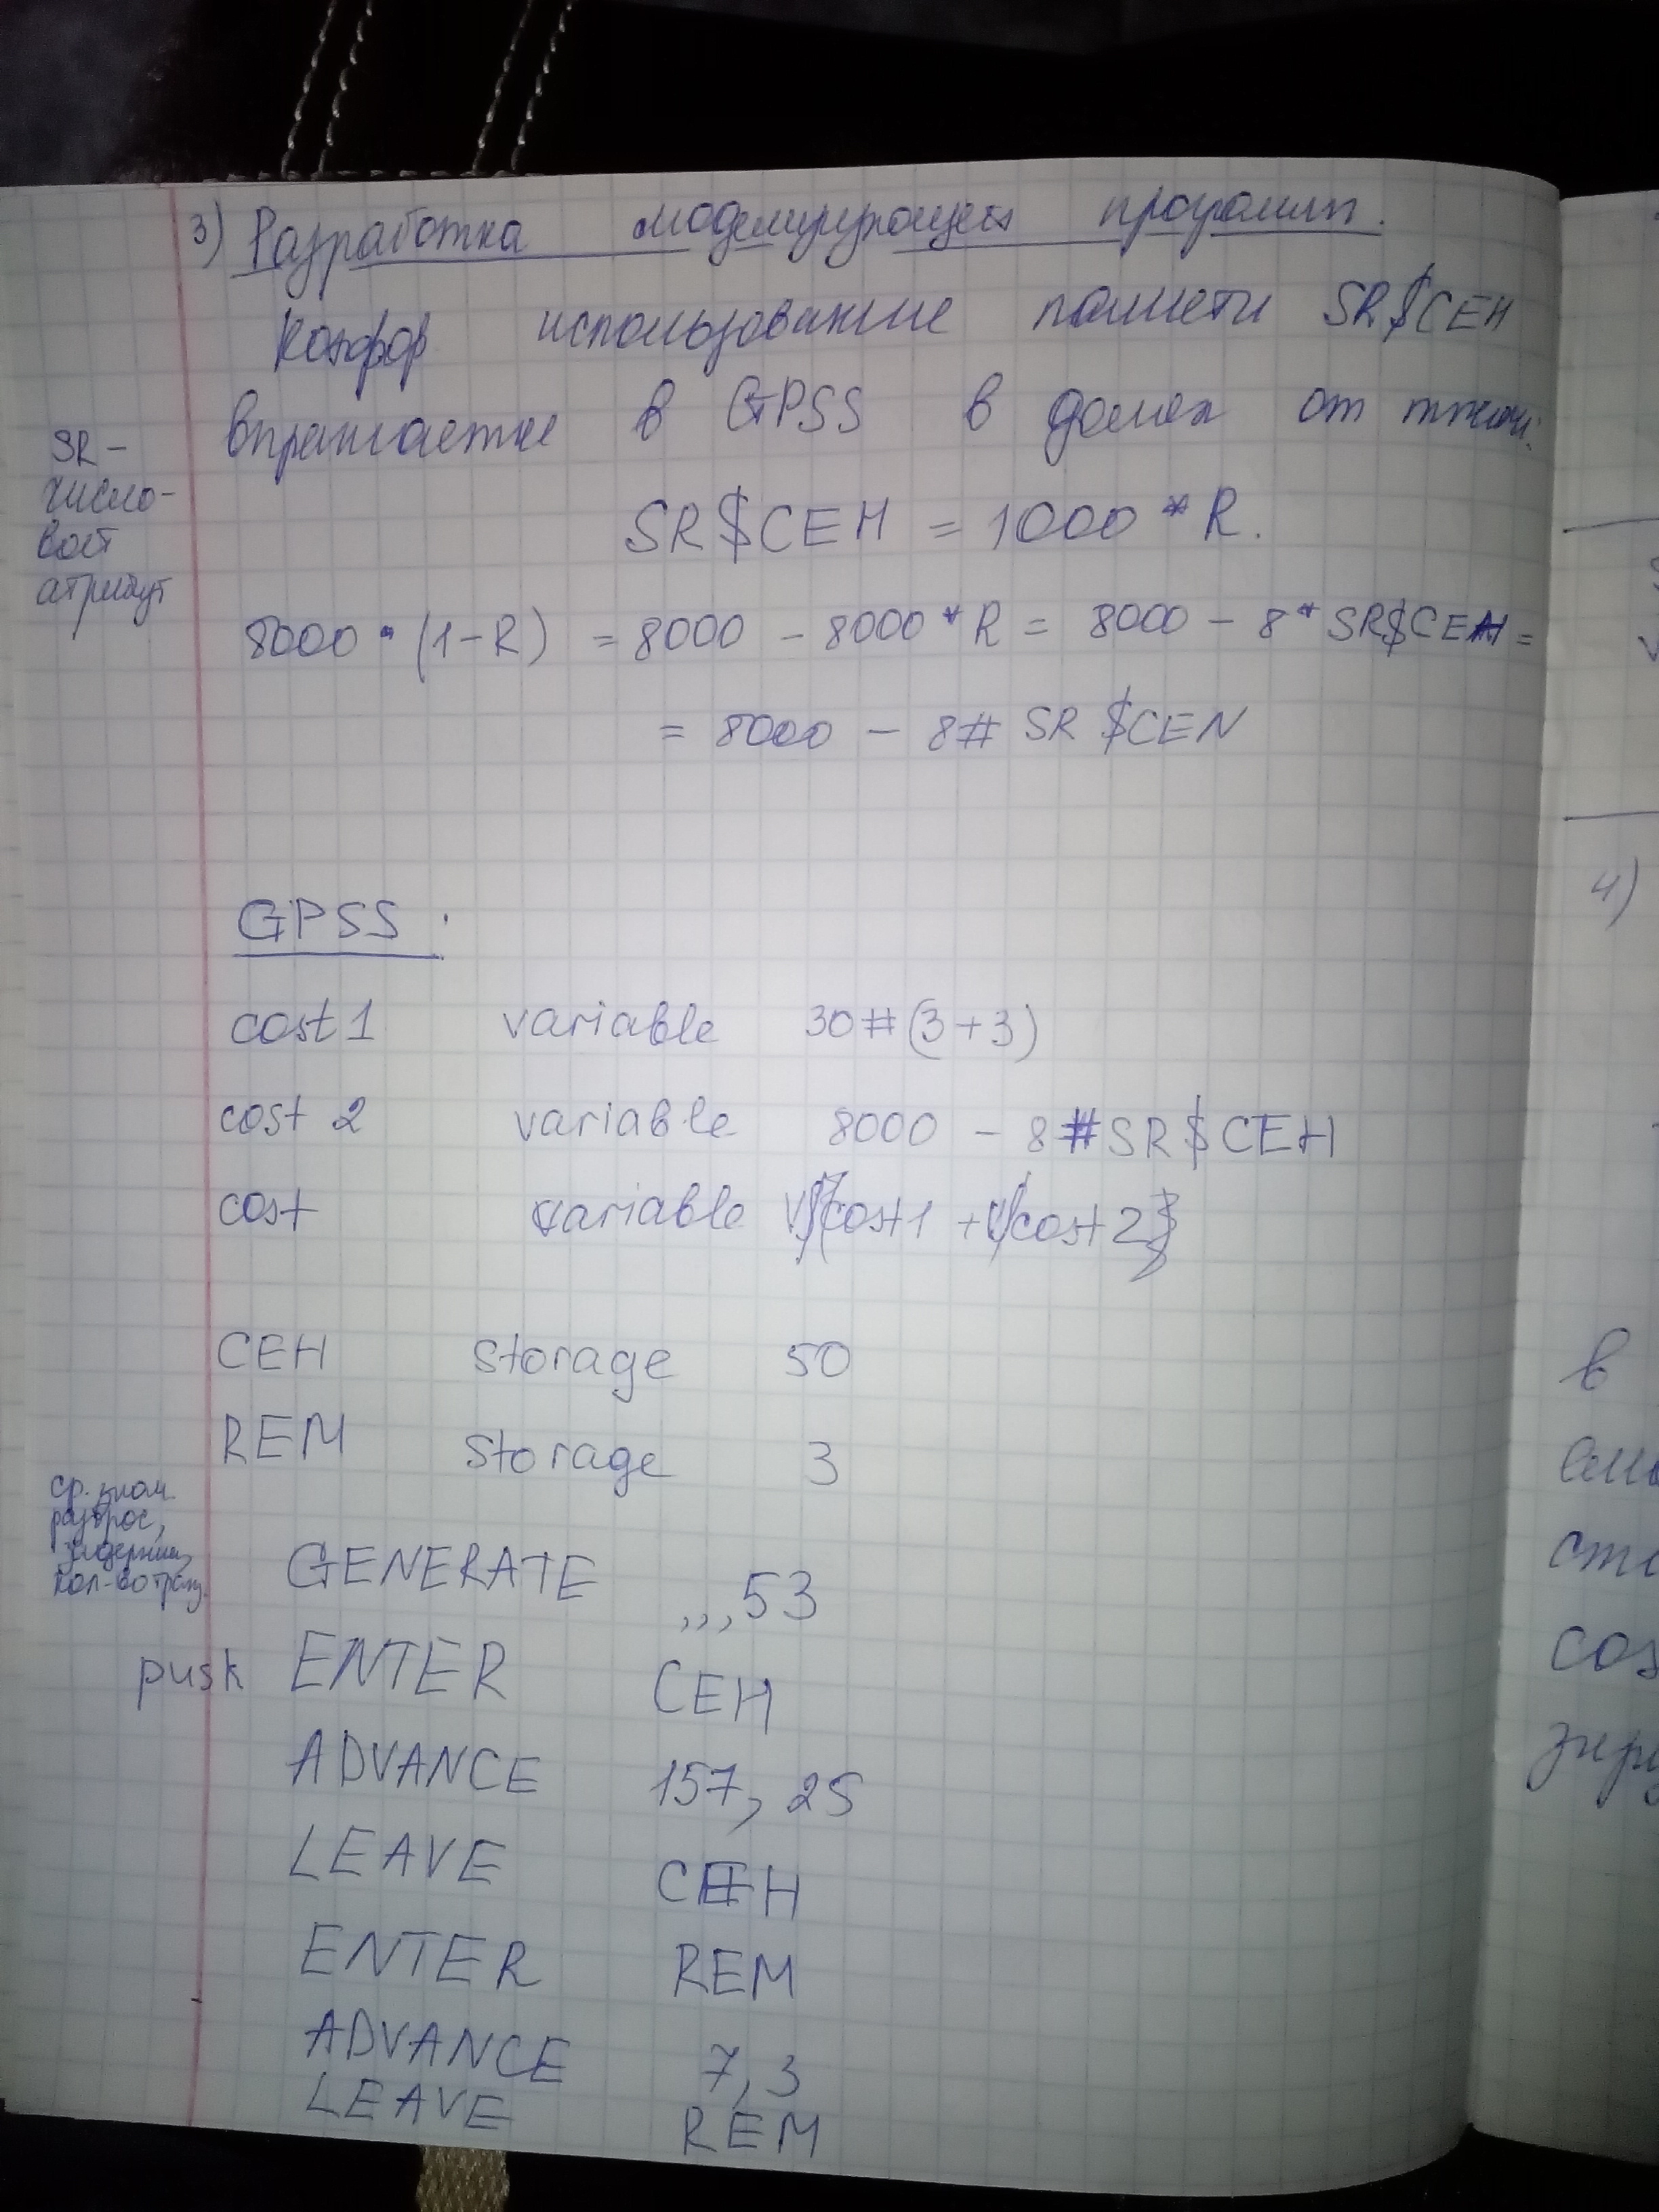 3) Разработка моделирующей программ.
Коэфф использование памяти SR$CEH
выражается в GPSS в долях от тысячи:
SR –
число-
вой
атрибут
SR$CEH = 1000 * R.
8000 • (1-R) = 8000 - 8000 * R = 8000 - 8 * SR$CEH =
= 8000 - 8# SR $CEN
GPSS.
cost 1 variable 30#(3+3)
cost 2 variable 8000 - 8#SR$CEH
cost variable V$cost1 + V$cost2
CEH storage 50
REM storage 3
ср. знач.
разброс,
задержки,
кол-во транз.
GENERATE ,,,53
pusk ENTER CEH
ADVANCE 157, 25
LEAVE CEH
ENTER REM
ADVANCE 7, 3
LEAVE REM
4)
в
сто
cos